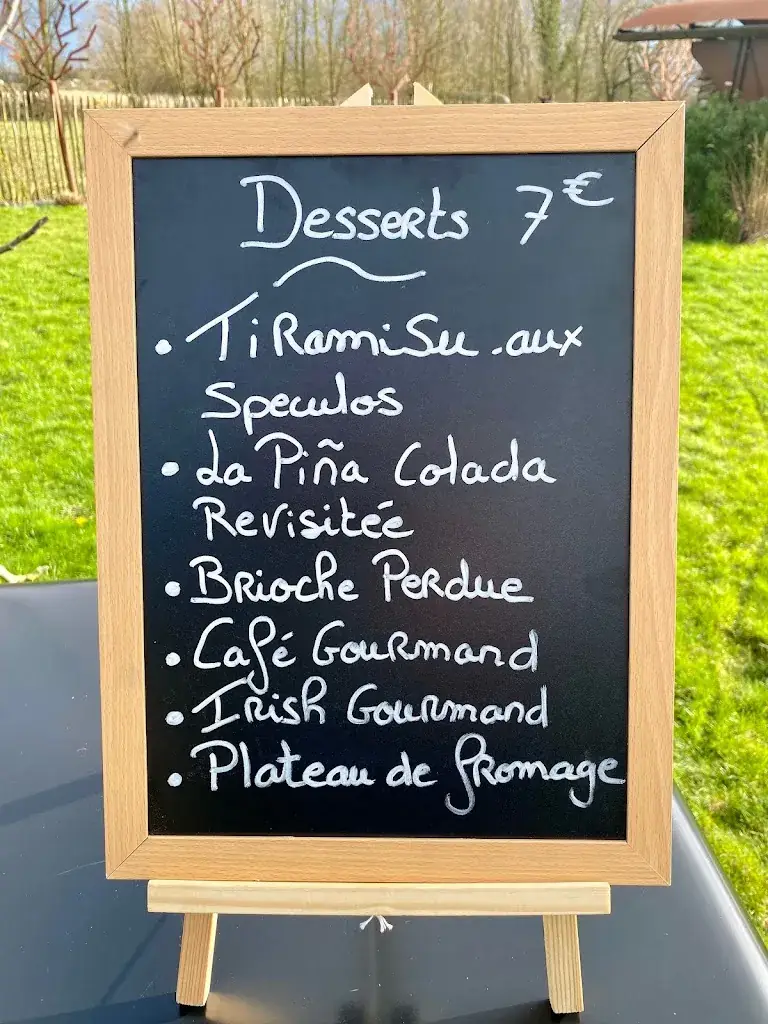 Desserts 7€
• Tiramisu aux
Speculos
• La Piña Colada
Revisitée
• Brioche Perdue
• Café Gourmand
• Irish Gourmand
• Plateau de fromage